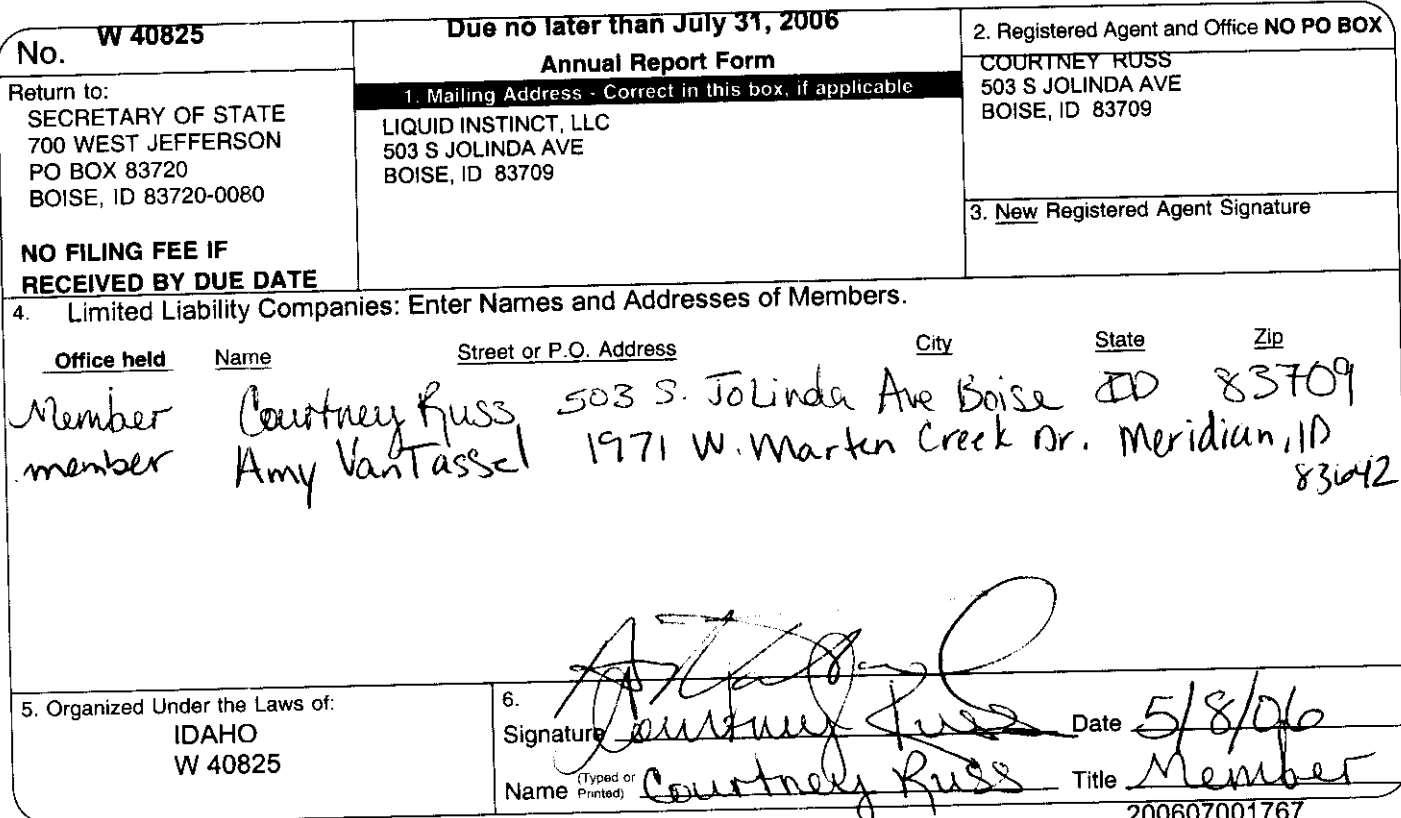 No. W 40825
Return to:
SECRETARY OF STATE
700 WEST JEFFERSON
PO BOX 83720
BOISE, ID 83720-0080
NO FILING FEE IF
RECEIVED BY DUE DATE
Due no later than July 31, 2006
Annual Report Form
1. Mailing Address - Correct in this box, if applicable
LIQUID INSTINCT, LLC
503 S JOLINDA AVE
BOISE, ID 83709
2. Registered Agent and Office NO PO BOX
COURTNEY RUSS
503 S JOLINDA AVE
BOISE, ID 83709
3. New Registered Agent Signature
4. Limited Liability Companies: Enter Names and Addresses of Members.
Office held Name Street or P.O. Address City State Zip
Member Courtney Russ 503 S. JoLinda Ave Boise ID 83709
member Amy VanTassel 1971 W. Marten Creek Dr. Meridian, ID
83642
5. Organized Under the Laws of:
IDAHO
W 40825
6.
Signature Courtney Russ Date 5/8/06
Name (Typed or Printed) Courtney Russ Title Member
200607001767